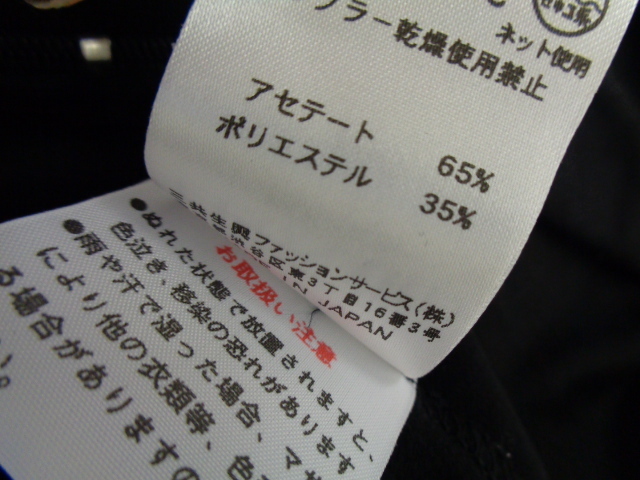 ネット使用
ブラー乾燥使用禁止
アセテート 65%
ポリエステル 35%
三共生興ファッションサービス(株)
東3丁目16番3号
IN JAPAN
お取扱い注意
●ぬれた状態で放置されますと、
色泣き、移染の恐れがあります
●雨や汗で湿った場合、マ
により他の衣類等、色
る場合がありますの
い。